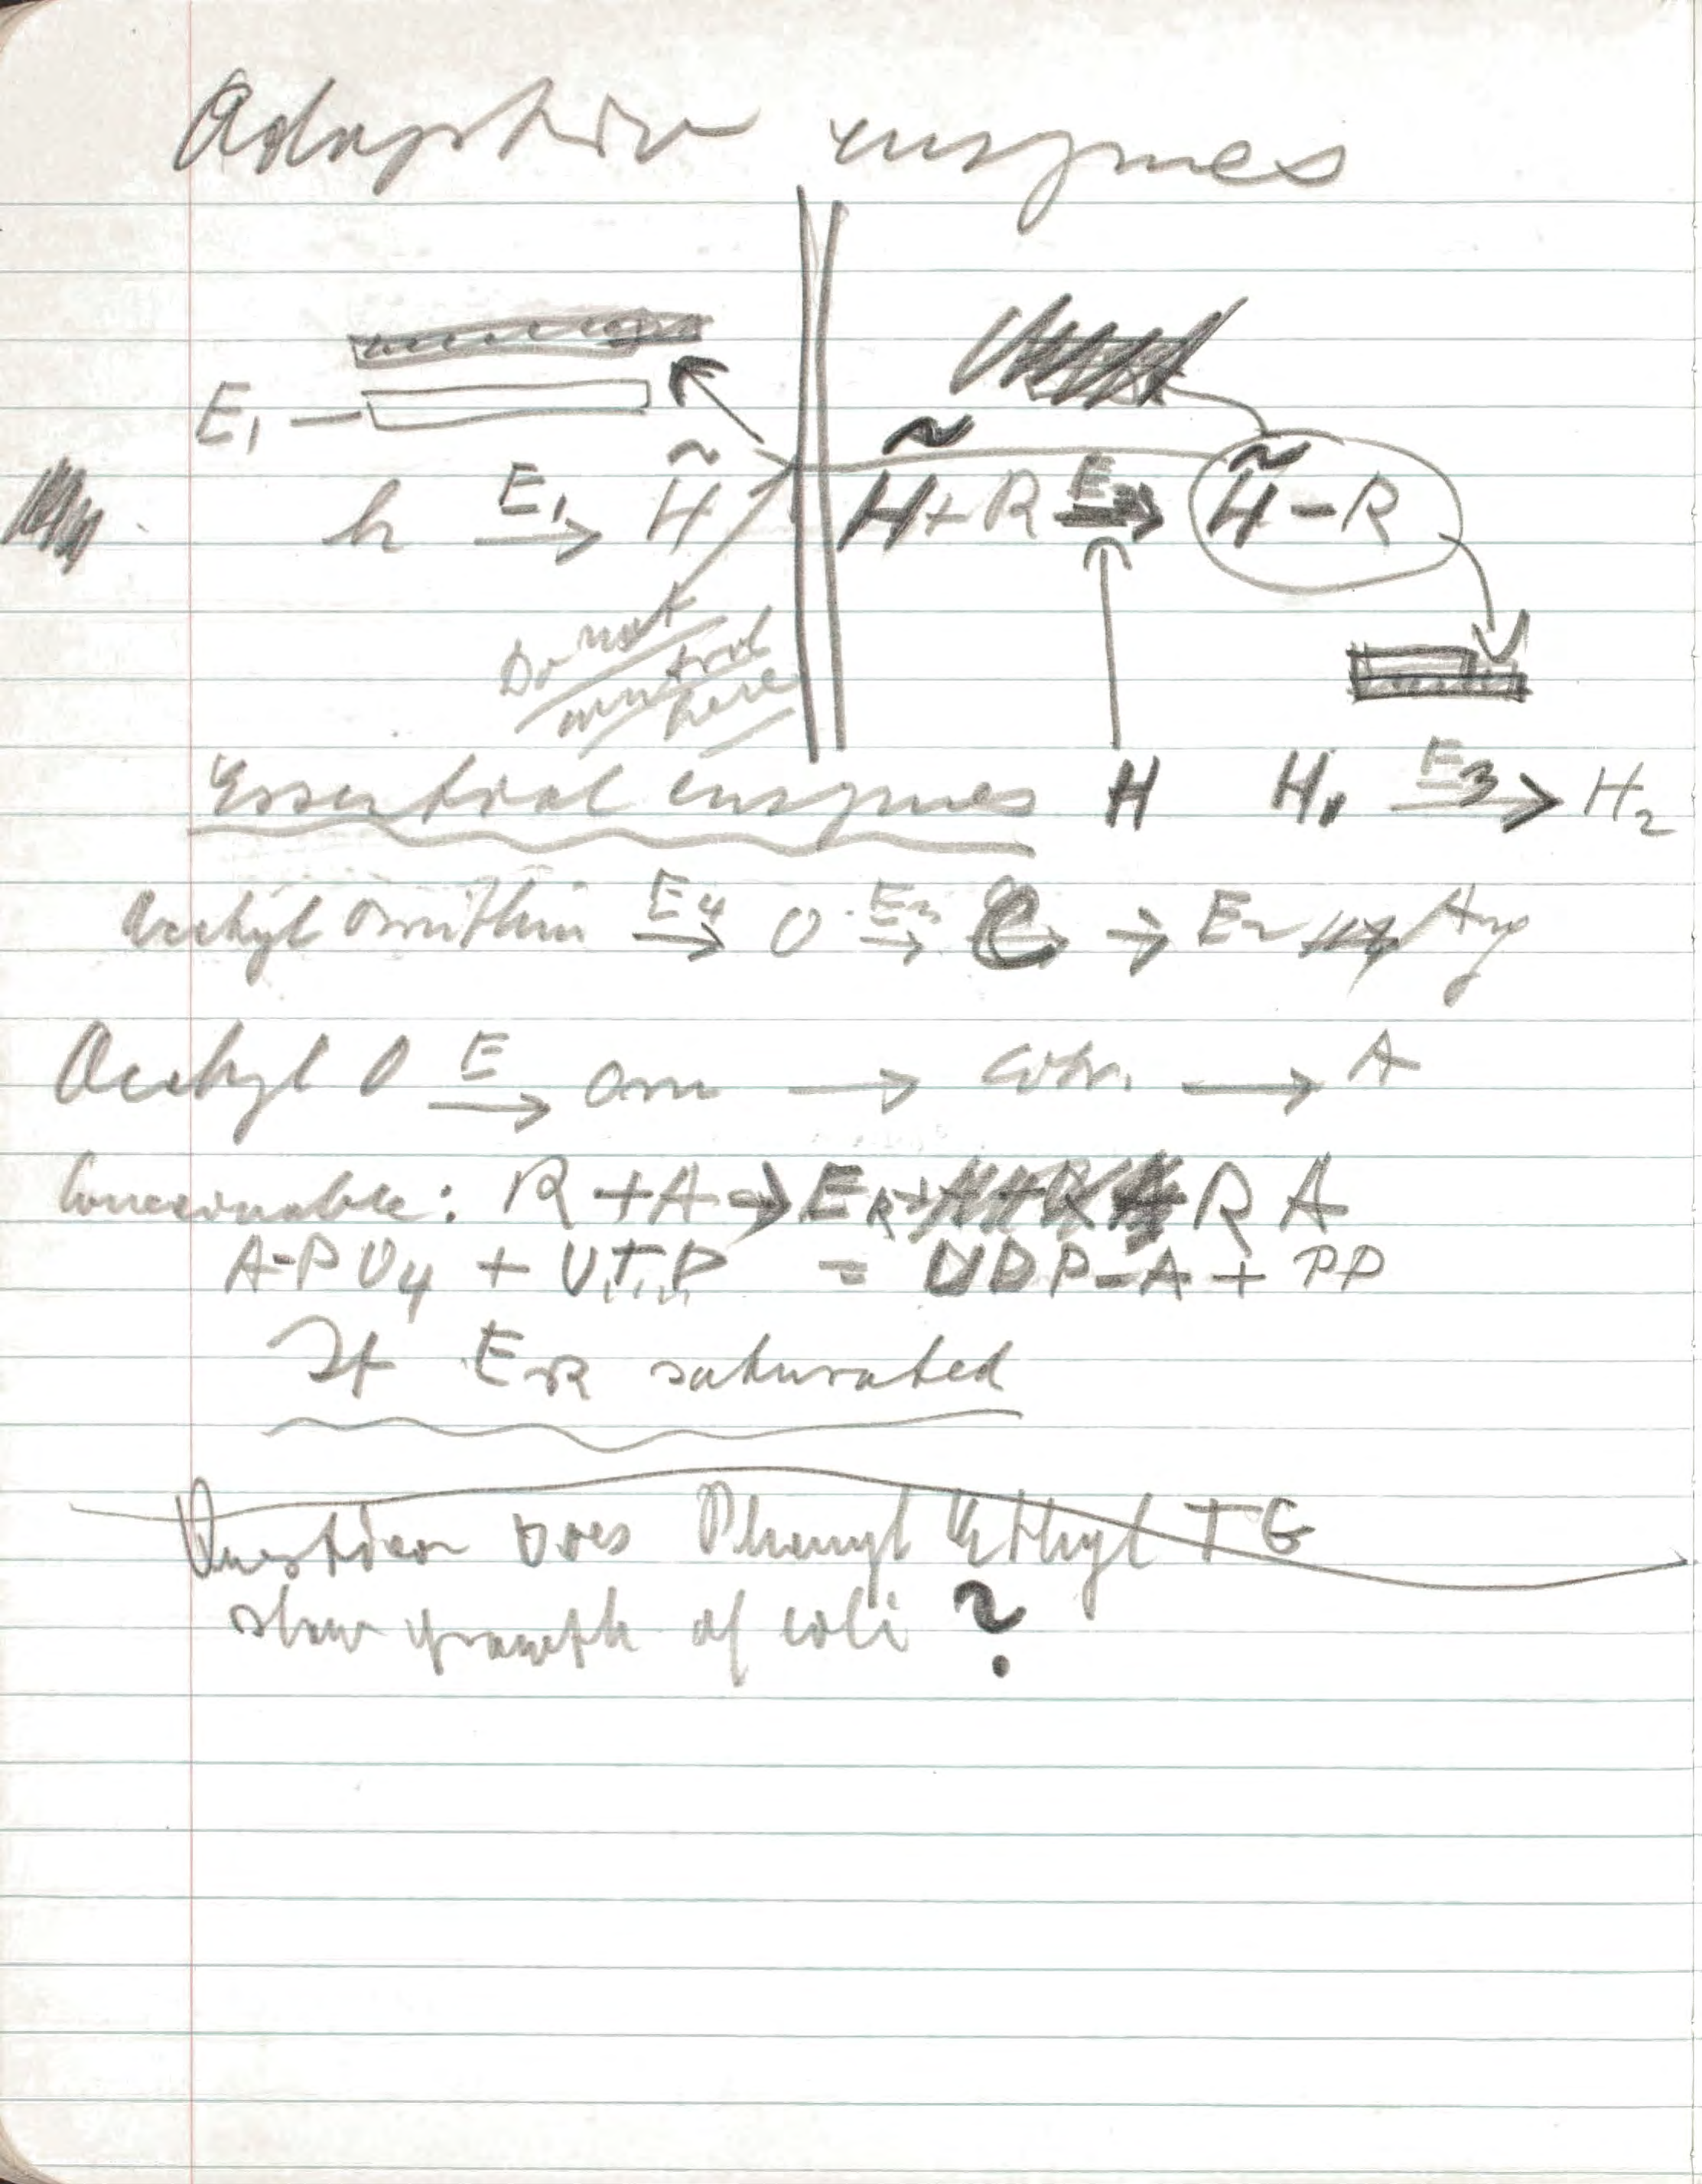 Adaptive enzymes
E₁
h E₁→ H̃ H̃+R E→ H̃-R
Do not
control
here
Essential enzymes H H₁ E₃→ H₂
Acetyl Ornithin E₄→ O E₃→ C → E₂ Arg
Acetyl O E→ Orn → Citr. → A
Conceivable: R + A → E_R + R A
A-PO4 + UTP = UDP-A + PP
If E_R saturated
Question Does Phenyl Ethyl TG
slow growth of coli ?